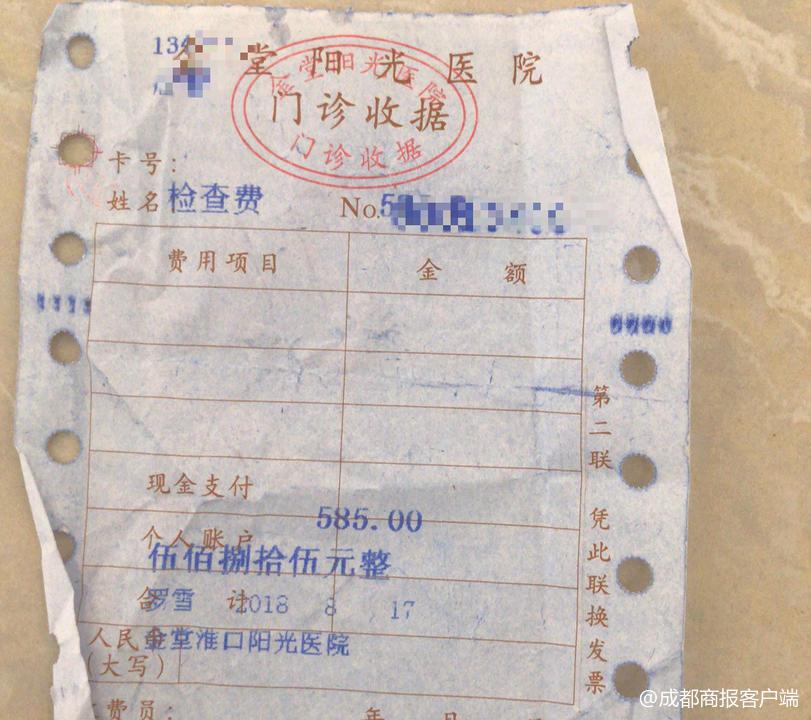 134
堂阳光医院
金堂阳光医院
门诊收据
门诊收据
卡号:
姓名 检查费 No.5
费用项目 金额
现金支付
585.00
个人账户
伍佰捌拾伍元整
合计
罗雪 2018 8 17
人民币
金堂淮口阳光医院
(大写)
费员: 年 月 日
第二联 凭此联换发票
@成都商报客户端